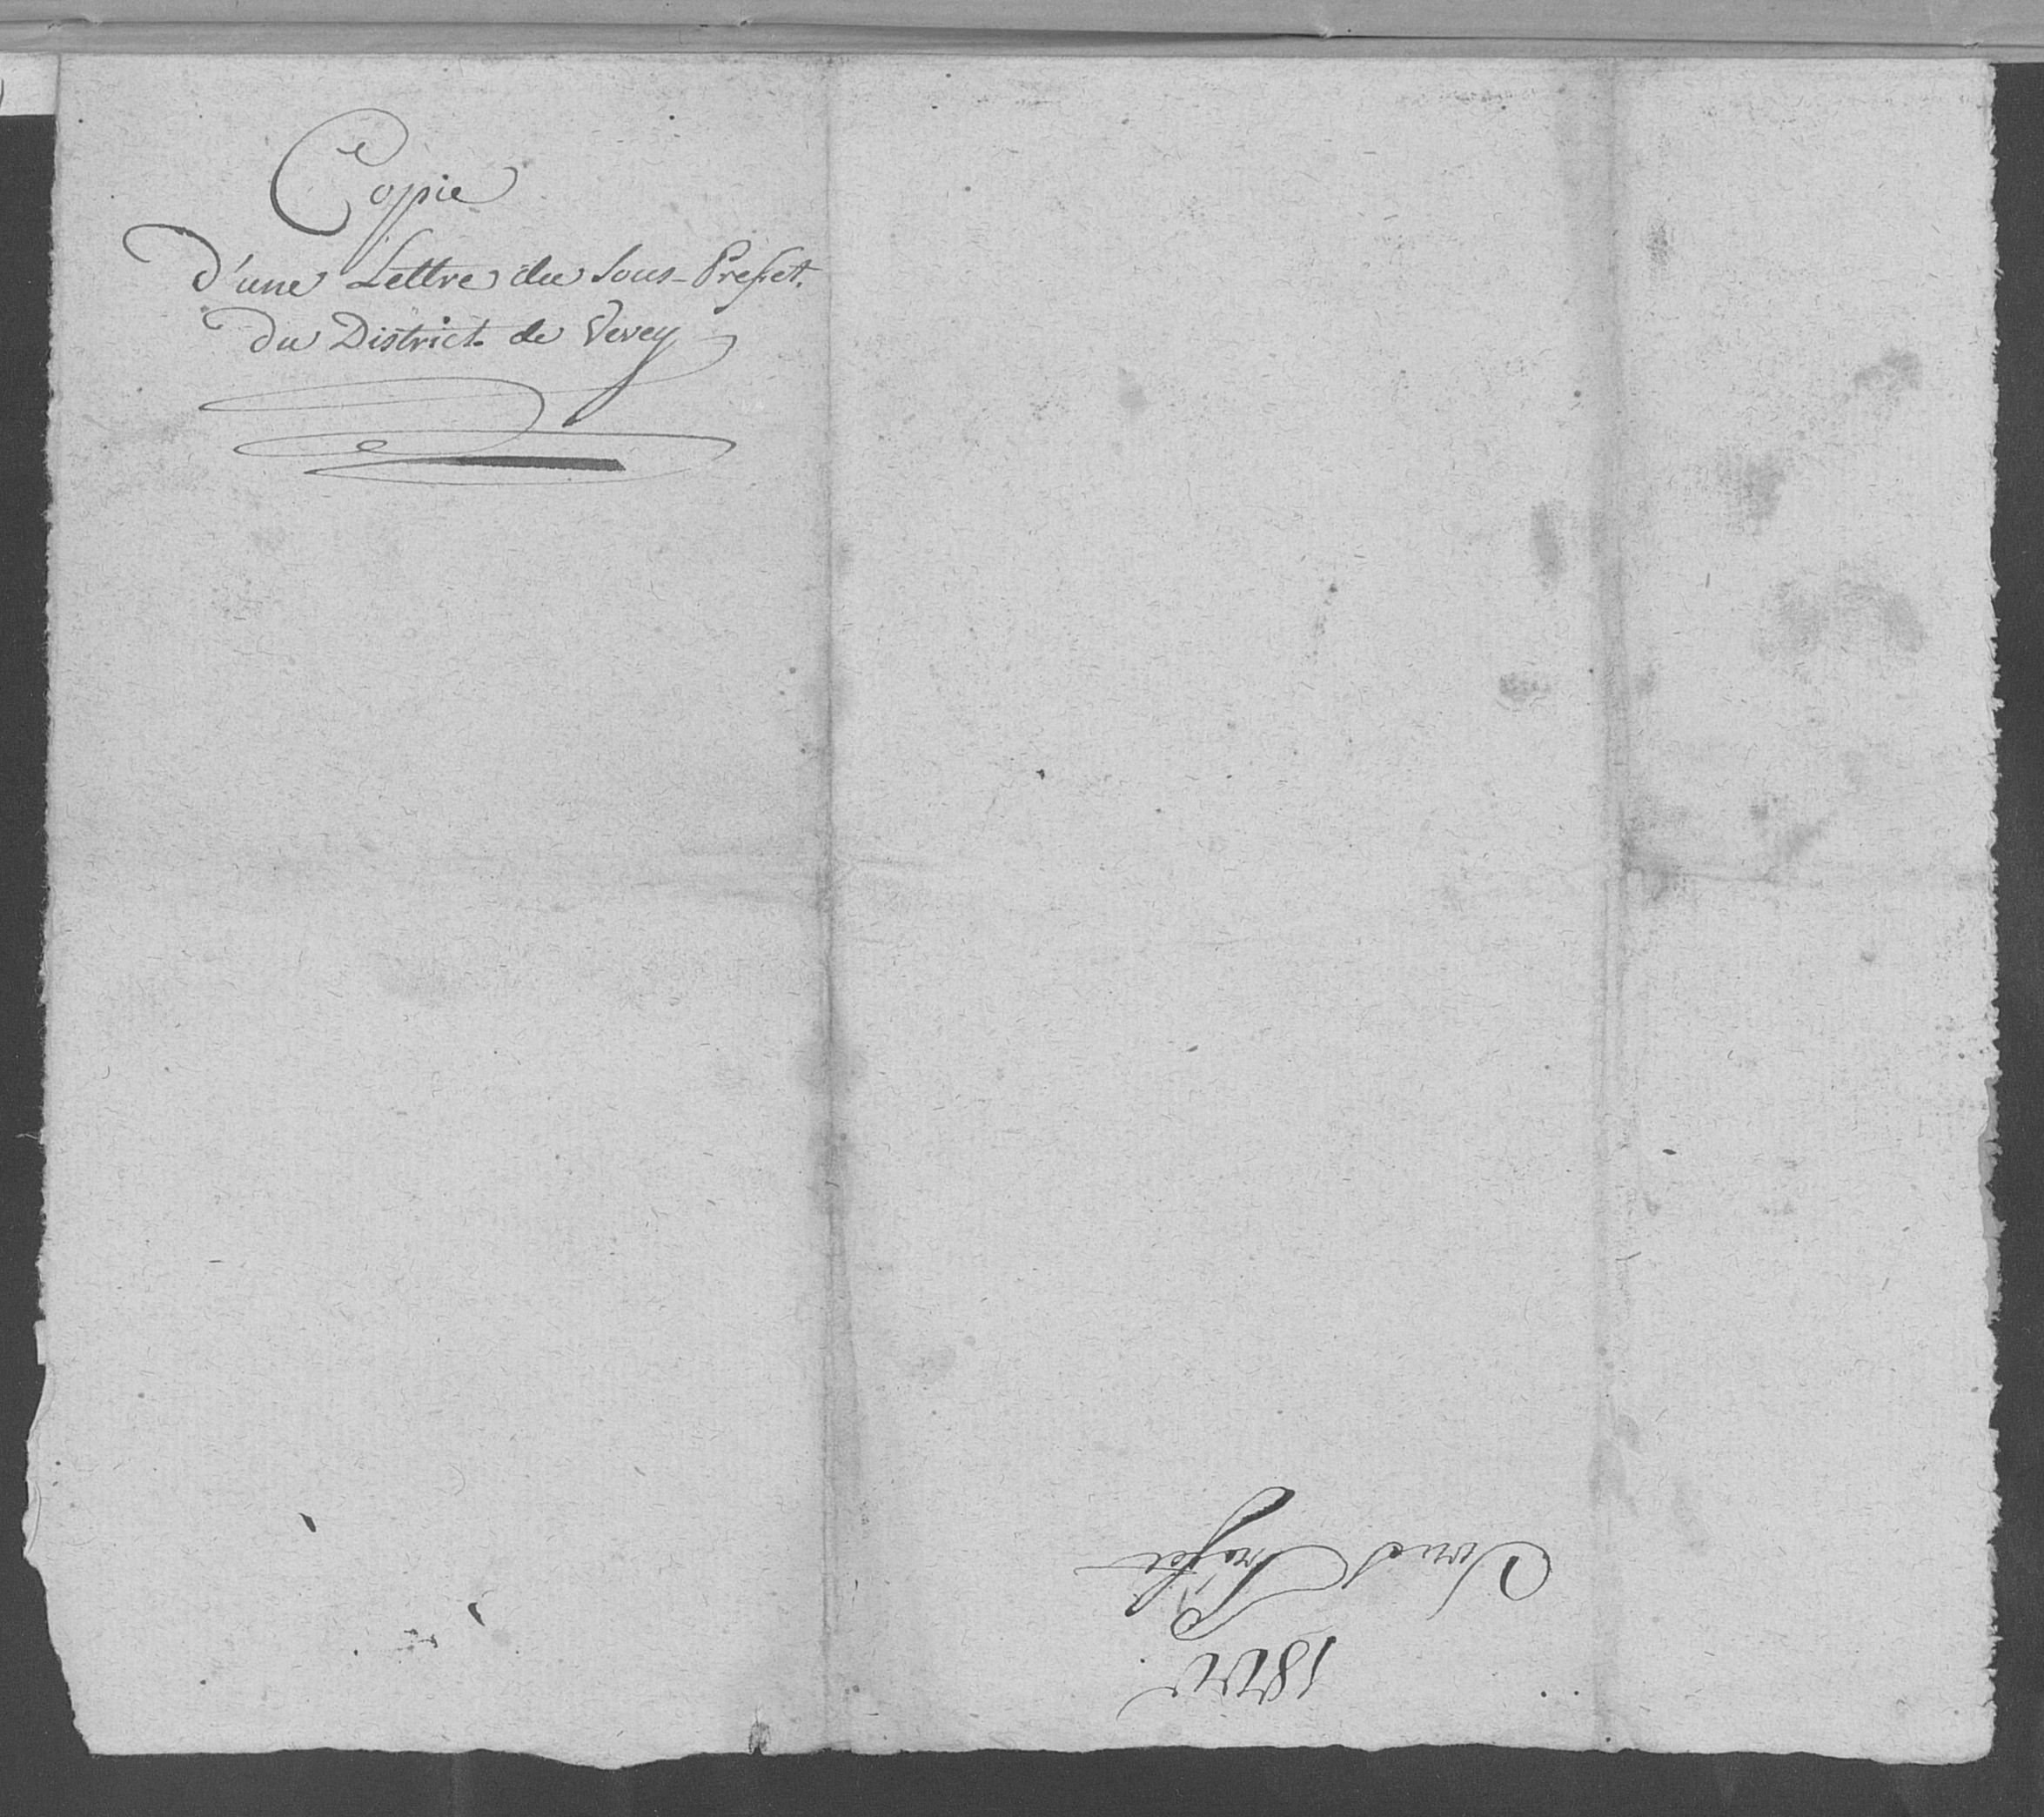 Copie
D'une Lettre du Sous-Prefet.
Du District de Vevey
1822
Sous Préfet